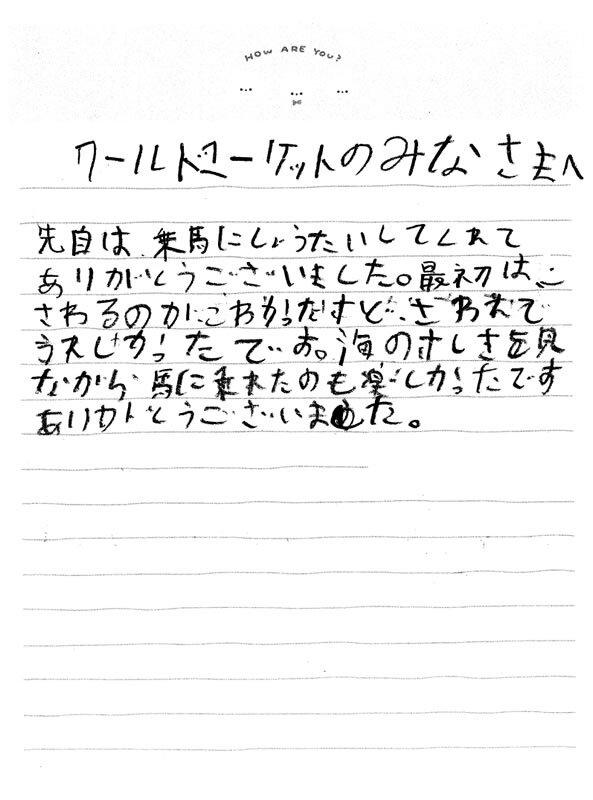 HOW ARE YOU?
ワールドマーケットのみなさまへ
先日は、乗馬にしょうたいしてくれて
ありがとうございました。最初は、
さわるのがこわかったけど、さわれて
うれしかったです。海のけしきを見
ながら馬に乗れたのも楽しかったです
ありがとうございました。